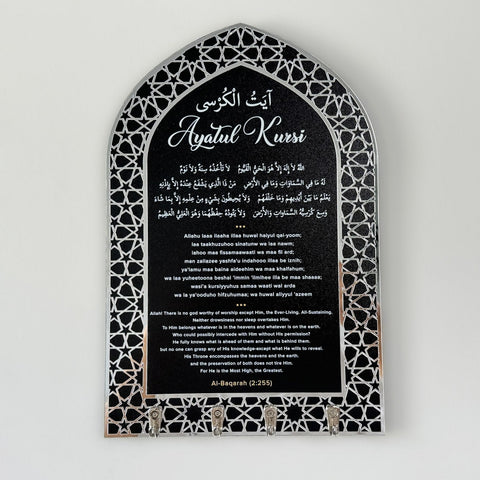 آيَتُ الْكُرْسِى
Ayatul Kursi
اللهُ لَا إِلَهَ إِلاَّ هُوَ الْحَيُّ الْقَيُّومُ لاَ تَأْخُذُهُ سِنَةٌ وَلاَ نَوْمٌ
لَهُ مَا فِي السَّمَاوَاتِ وَمَا فِي الأَرْضِ مَنْ ذَا الَّذِي يَشْفَعُ عِنْدَهُ إِلاَّ بِإِذْنِهِ
يَعْلَمُ مَا بَيْنَ أَيْدِيهِمْ وَمَا خَلْفَهُمْ وَلاَ يُحِيطُونَ بِشَيْءٍ مِنْ عِلْمِهِ إِلاَّ بِمَا شَاءَ
وَسِعَ كُرْسِيُّهُ السَّمَاوَاتِ وَالأَرْضَ وَلاَ يَئُودُهُ حِفْظُهُمَا وَهُوَ الْعَلِيُّ الْعَظِيمُ
Allahu laaa ilaaha illaa huwal haiyul qai-yoom;
laa taakhuzuhoo sinaturw wa laa nawm;
lahoo maa fissamaawaati wa maa fil ard;
man zallazee yashfa'u indahooo illaa be iznih;
ya'lamu maa baina aideehim wa maa khalfahum;
wa laa yuheetoona beshai 'immin 'ilmihee illa be maa shaaaa;
wasi'a kursiyyuhus samaa waati wal arda
wa la ya'ooduho hifzuhumaa; wa huwal aliyyul 'azeem
Allah! There is no god worthy of worship except Him, the Ever-Living, All-Sustaining.
Neither drowsiness nor sleep overtakes Him.
To Him belongs whatever is in the heavens and whatever is on the earth.
Who could possibly intercede with Him without His permission?
He fully knows what is ahead of them and what is behind them,
but no one can grasp any of His knowledge-except what He wills to reveal.
His Throne encompasses the heavens and the earth,
and the preservation of both does not tire Him.
For He is the Most High, the Greatest.
Al-Baqarah (2:255)